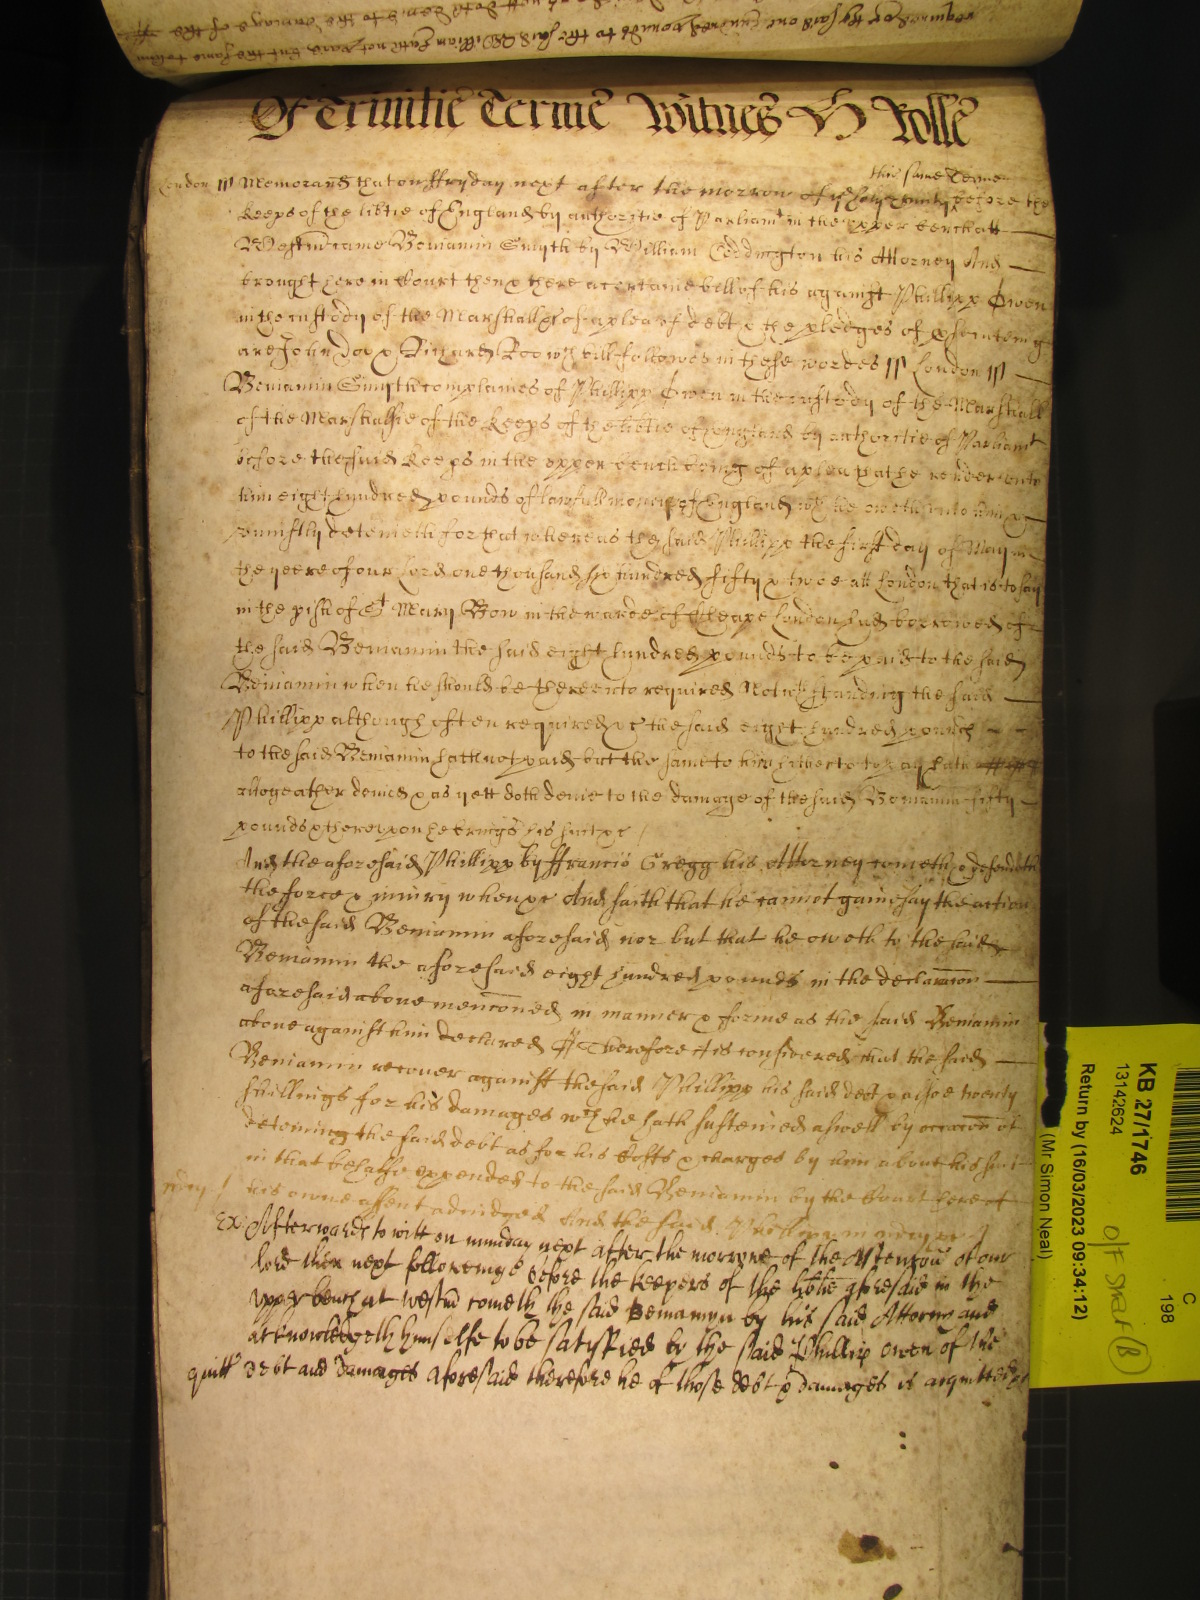 required &c the said one hundred pounds to the said William hath not paid but the same to him
doth denie to the damage of the
Of Trinitie Terme Witnes H Rolle
this same Terme
London ss Memorand that on ffryday next after the morrow of ye holy Trinity before the
Keeps of the libtie of England by authoritie of Parliamt in the upper bench att
Westm came Beniamin Smyth by William Coddington his Attorney And
brought here in Court then & there a certaine bill of his against Phillipp Owen
in the custody of the Marshall &c of a plea of debt & the pledges of
are John Doo & Richard Roo wch bill followes in these wordes ss London ss
Beniamin Smyth complaines of Phillipp Owen in the custody of the Marshall
of the Marshalsie of the Keeps of the libtie of England by authoritie of Parliamt
before the said Keeps in the upper bench being of a plea that he render unto
him eight hundred pounds of lawfull money of England wch he oweth unto him &
uniustly deteineth for that whereas the said Phillipp the first day of May in
the yeere of our Lord one thousand six hundred fifty & twoe att London that is to say
in the pish of St Mary Bow in the warde of Cheape London had borrowed of
the said Beniamin the said eight hundred pounds to be paid to the said
Beniamin when he should be thereunto required Notwthstanding the said
Phillipp although often required &c the said eight hundred pounds
to the said Beniamin hath not paid but the same to him hitherto to pay hath
altogeather denied & as yett doth denie to the damage of the said Beniamin fifty
pounds & thereupon he brings his suit &c
And the aforesaid Phillipp by ffrancis Gregg his Attorney cometh & defendeth
the force & iniury when &c And saith that he cannot gainesay the action
of the said Beniamin aforesaid nor but that he oweth to the said
Beniamin the aforesaid eight hundred pounds in the declaracon
aforesaid above menconed in manner & forme as the said Beniamin
above against him declared Therefore it is considered that the said
Beniamin recover against the said Phillipp his said debt & alsoe twenty
shillings for his damages wch he hath susteined aswell by occacon of
deteining the said debt as for his Costs & charges by him about his suit
in that behalfe expended to the said Beniamin by the Court here of
mcy his owne assent adiudged And the said Phillipp in mercy &c
Ex: Afterwards to witt on munday next after the morrowe of the Ascencon of our
lord then next followinge before the Keepers of the libtie aforesaid in the
upper bench at Westm cometh the said Beniamyn by his said Attorny and
acknowledgeth himselfe to be satysfied by the said Phillip Owen of the
quitt debt and damages aforesaid therefore he of those debt & damages is acquitted &c
KB 27/1746
13142624
Return by (16/03/2023 09:34:12)
(Mr Simon Neal)
C
198
O/F Shelf (B)